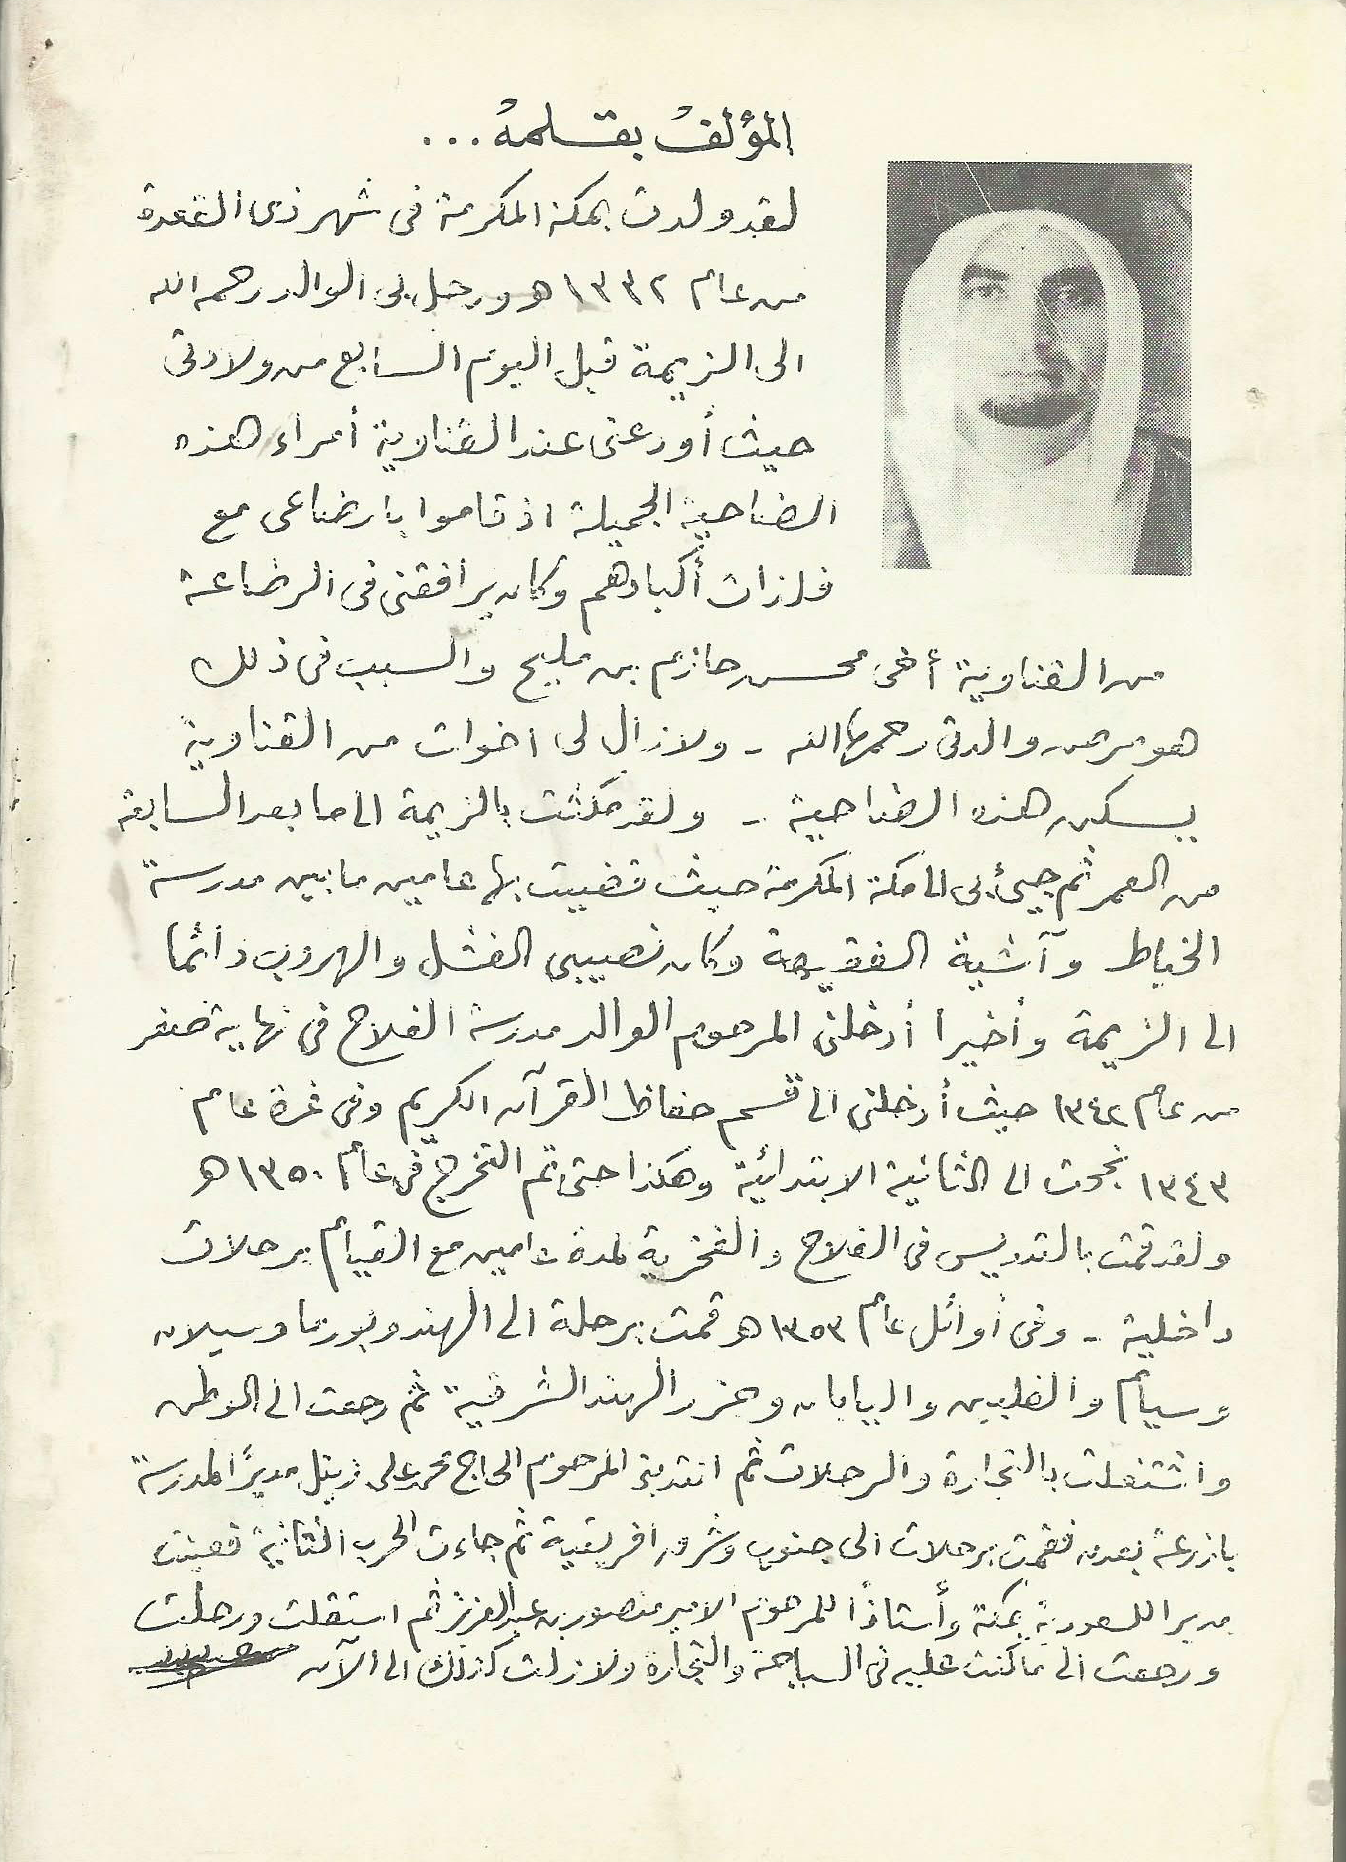 المؤلف بقلمه ...
لقد ولدت بمكة المكرمة فى شهر ذى القعدة
من عام ١٣٣٢ هـ ورحل بى الوالد رحمه الله
الى الزيمة قبل اليوم السابع من ولادتى
حيث أودعنى عند القناوية أمراء هذه
الضاحية الجميلة اذ قاموا بارضاعى مع
فلذات أكبادهم وكان يرافقنى فى الرضاعة
من القناوية أخى محسن حازم بن مليح والسبب فى ذلك
هو مرض والدتى رحمها الله - ولازال لى اخوات من القناوية
يسكن هذه الضاحية - ولقد مكثت بالزيمة الى ما بعد السابعة
من العمر ثم جيئ بى الى مكة المكرمة حيث قضيت بها عامين مابين مدرسة
الخياط وآشية الفقيهة وكان نصيبى الفشل والهروب دائما
الى الزيمة وأخيرا أدخلنى المرحوم الوالد مدرسة الفلاح فى نهاية صفر
من عام ١٣٤٢ حيث أدخلنى الى قسم حفاظ القرآن الكريم وفى غرة عام
١٣٤٣ نجحت الى الثانية الابتدائية وهكذا حتى تم التخرج فى عام ١٣٥٠ هـ
ولقد قمت بالتدريس فى الفلاح والفخرية لمدة عامين مع القيام برحلات
داخلية - وفى أوائل عام ١٣٥٣ هـ قمت برحلة الى الهند وبورما وسيلان
وسيام والفلبين واليابان وجزر الهند الشرقية ثم رجعت الى الوطن
واشتغلت بالتجارة والرحلات ثم انتدبنى المرحوم الحاج محمد على زينل مديرًا لمدرسة
بازرعة بعدن فقمت برحلات الى جنوب وشرق افريقية ثم جاءت الحرب الثانية فعينت
مديرا للسعودية بمكة وأستاذًا للمرحوم الامير منصور بن عبد العزيز ثم استقلت ورحلت
ورجعت الى ماكنت عليه فى السياحة والتجارة ولازلت كذلك الى الآن